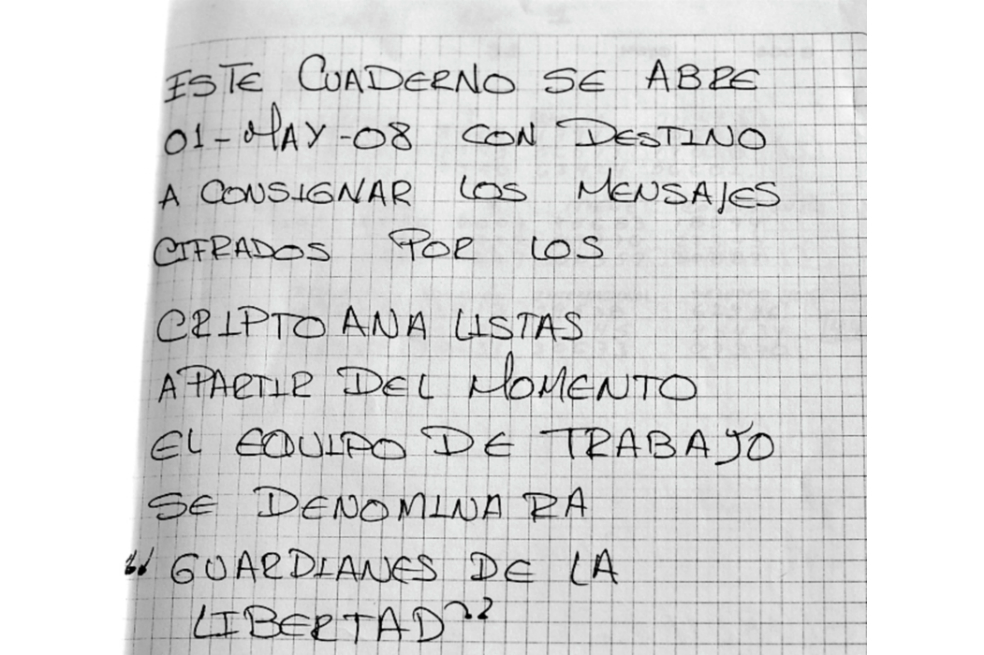 ESTE CUADERNO SE ABRE
01-MAY-08 CON DESTINO
A CONSIGNAR LOS MENSAJES
CIFRADOS POR LOS
CRIPTOANALISTAS
A PARTIR DEL MOMENTO
EL EQUIPO DE TRABAJO
SE DENOMINARA
"GUARDIANES DE LA
LIBERTAD"